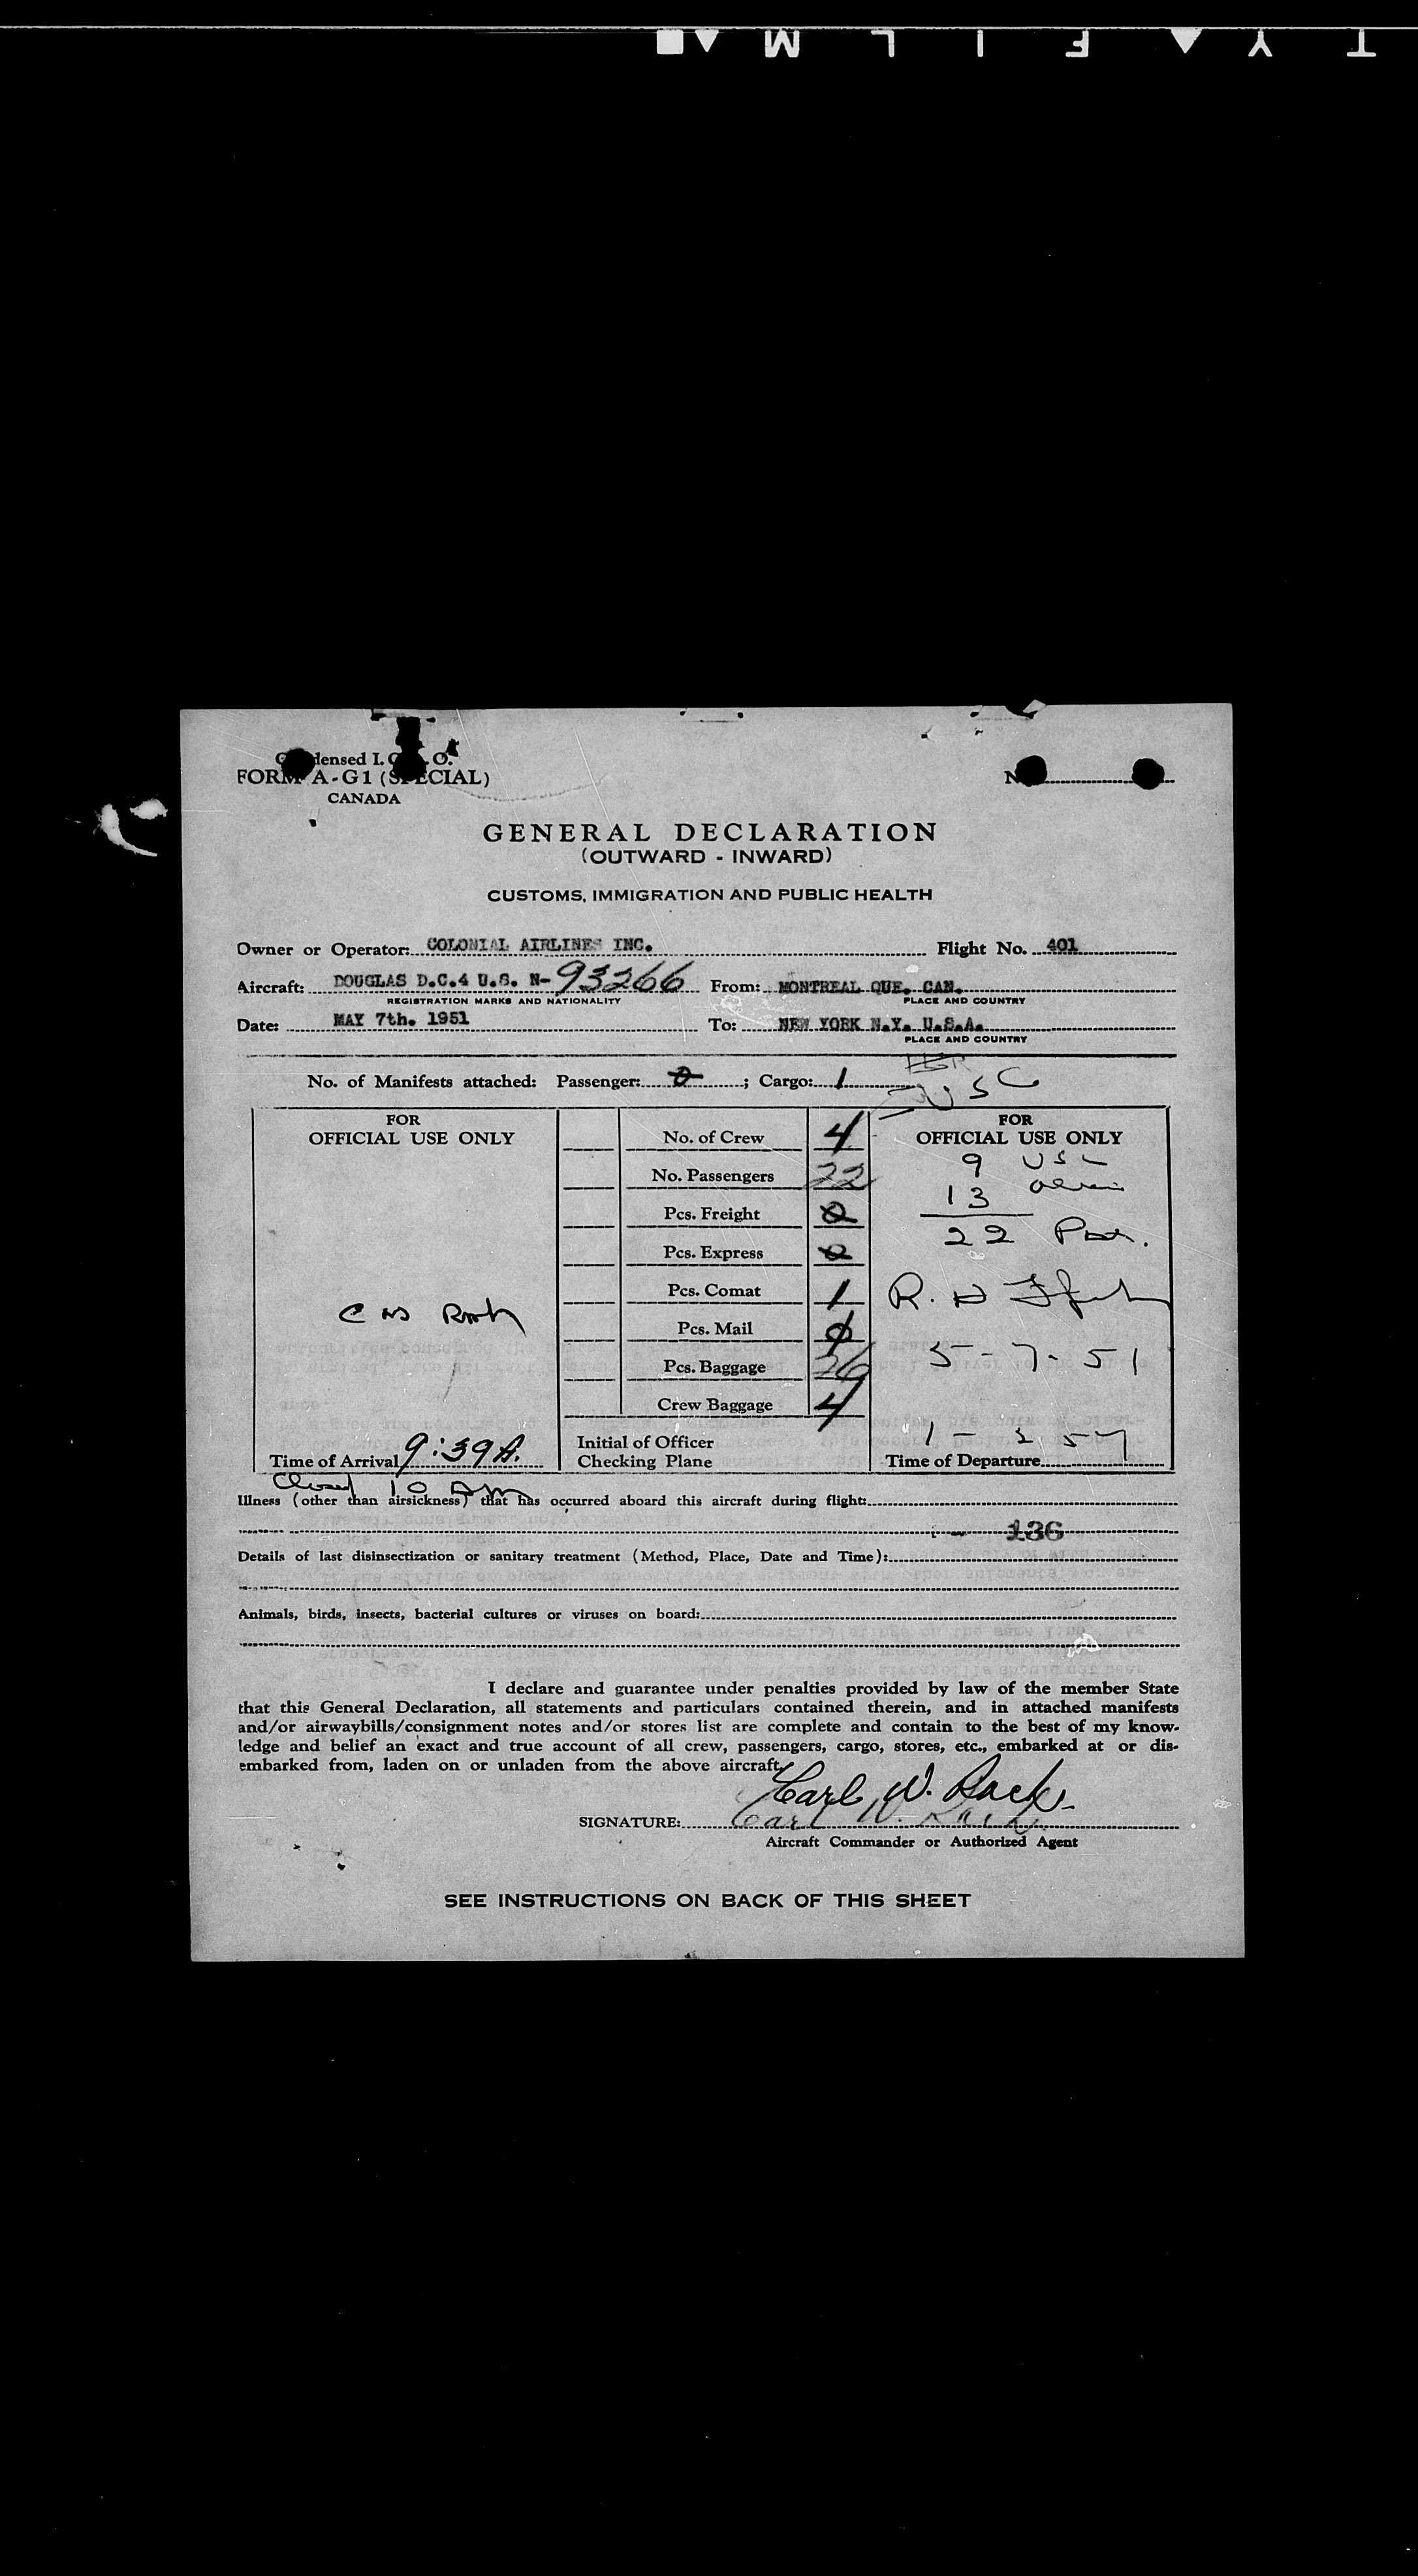 SAFETY FILM
Condensed I.C.A.O.
FORM A-G1 (SPECIAL)
CANADA
GENERAL DECLARATION
(OUTWARD - INWARD)
CUSTOMS, IMMIGRATION AND PUBLIC HEALTH
Owner or Operator: COLONIAL AIRLINES INC. Flight No. 401
Aircraft: DOUGLAS D.C.4 U.S. N-93266 From: MONTREAL QUE. CAN.
REGISTRATION MARKS AND NATIONALITY PLACE AND COUNTRY
Date: MAY 7th. 1951 To: NEW YORK N.Y. U.S.A.
PLACE AND COUNTRY
No. of Manifests attached: Passenger: 0 ; Cargo: 1
USC
FOR
OFFICIAL USE ONLY
Time of Arrival 9:39A.
No. of Crew 4
No. Passengers 22
Pcs. Freight 0
Pcs. Express 0
Pcs. Comat 1
Pcs. Mail
Pcs. Baggage 26
Crew Baggage 4
Initial of Officer
Checking Plane
FOR
OFFICIAL USE ONLY
9 USC
13
22 Pax.
5-7-51
Time of Departure
Closed 10 AM
Illness (other than airsickness) that has occurred aboard this aircraft during flight:
136
Details of last disinsectization or sanitary treatment (Method, Place, Date and Time):
Animals, birds, insects, bacterial cultures or viruses on board:
I declare and guarantee under penalties provided by law of the member State
that this General Declaration, all statements and particulars contained therein, and in attached manifests
and/or airwaybills/consignment notes and/or stores list are complete and contain to the best of my know-
ledge and belief an exact and true account of all crew, passengers, cargo, stores, etc., embarked at or dis-
embarked from, laden on or unladen from the above aircraft.
Carl W. Rack
SIGNATURE: Carl W. Rack
Aircraft Commander or Authorized Agent
SEE INSTRUCTIONS ON BACK OF THIS SHEET